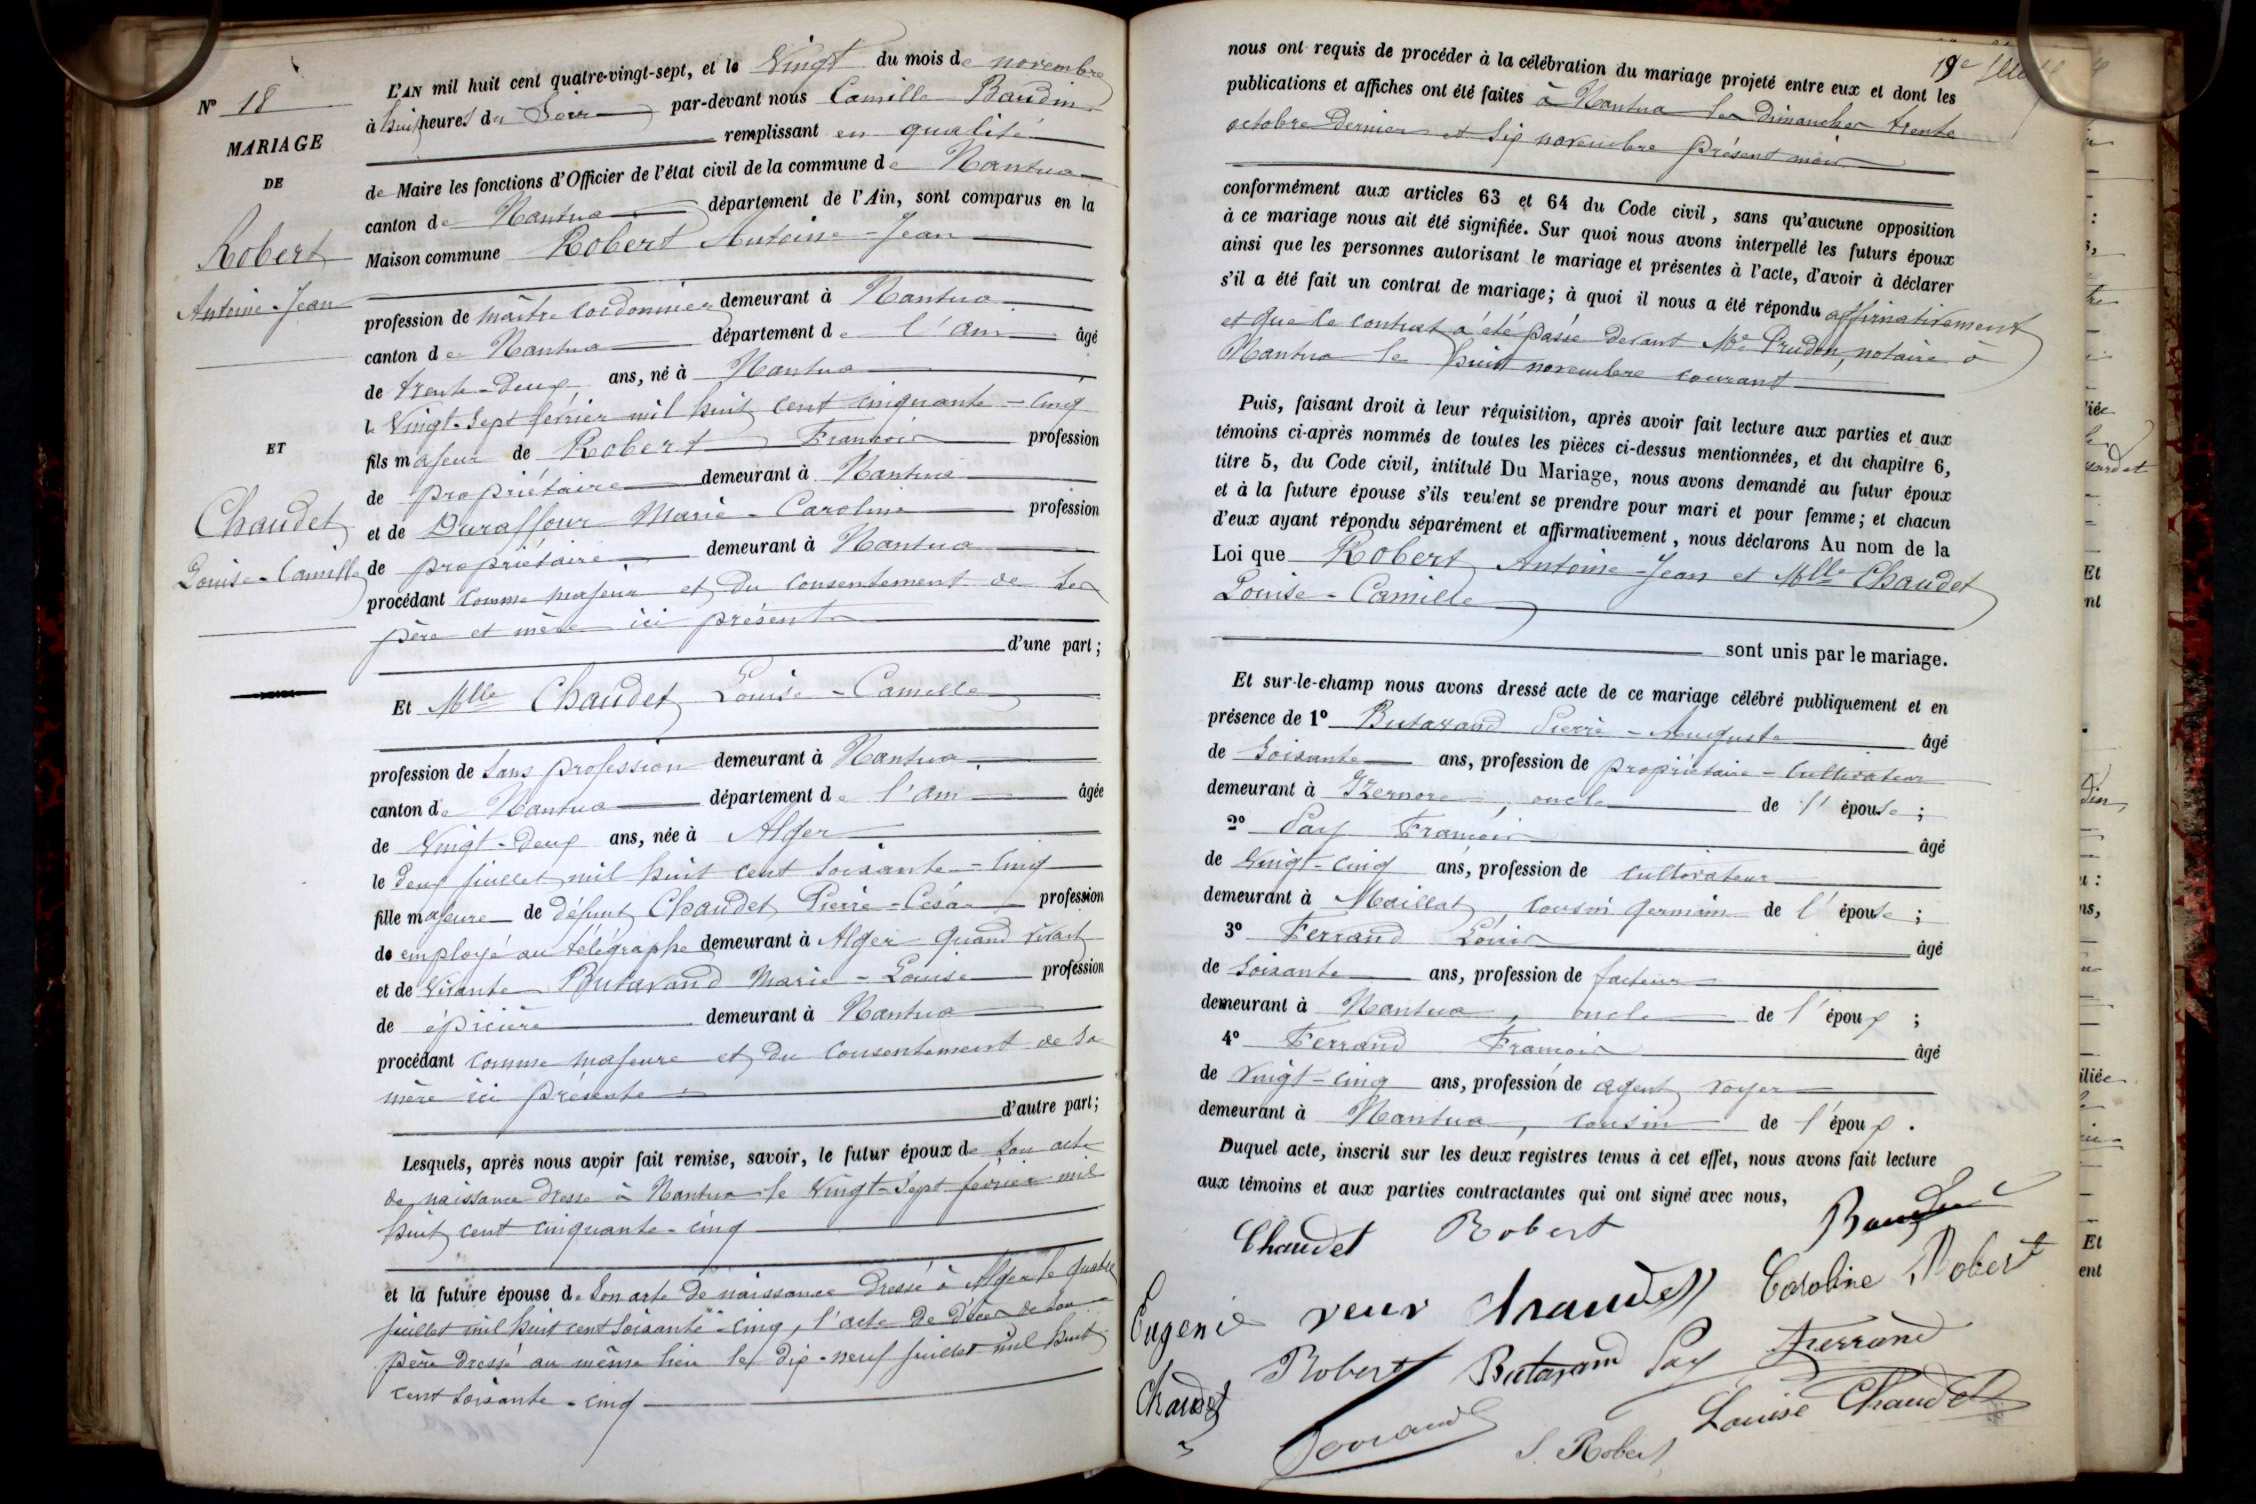 N° 18
MARIAGE
DE
Robert
Antoine-Jean
ET
Chaudet
Louise-Camille
L'AN mil huit cent quatre-vingt-sept, et le Vingt du mois de novembre
à huit heures du Soir par-devant nous Camille Baudin
remplissant en qualité
de Maire les fonctions d'Officier de l'état civil de la commune de Nantua
canton de Nantua département de l'Ain, sont comparus en la
Maison commune Robert Antoine-Jean
profession de maître cordonnier demeurant à Nantua
canton de Nantua département de l'ain âgé
de trente-deux ans, né à Nantua
le Vingt-Sept février mil huit cent cinquante-cinq
fils majeur de Robert François profession
de propriétaire demeurant à Nantua
et de Duraffour Marie-Caroline profession
de propriétaire demeurant à Nantua
procédant comme majeur et du consentement de ses
père et mère ici présents
d'une part;
Et Mlle Chaudet Louise-Camille
profession de sans profession demeurant à Nantua
canton de Nantua département de l'ain âgée
de Vingt-deux ans, née à Alger
le deux juillet mil huit cent soixante-cinq
fille majeure de défunt Chaudet Pierre-César profession
de employé au télégraphe demeurant à Alger quand vivait
et de vivante Butavand Marie-Louise profession
de épicière demeurant à Nantua
procédant comme majeure et du consentement de sa
mère ici présente
d'autre part;
Lesquels, après nous avoir fait remise, savoir, le futur époux de son acte
de naissance dressé à Nantua le Vingt-Sept février mil
huit cent cinquante-cinq
et la future épouse de son acte de naissance dressé à Alger le quatre
juillet mil huit cent soixante-cinq, l'acte de décès de son
père dressé au même lieu le dix-neuf juillet mil huit
cent soixante-cinq
nous ont requis de procéder à la célébration du mariage projeté entre eux et dont les
publications et affiches ont été faites à Nantua les Dimanches trente
octobre dernier et six novembre présent mois
conformément aux articles 63 et 64 du Code civil, sans qu'aucune opposition
à ce mariage nous ait été signifiée. Sur quoi nous avons interpellé les futurs époux
ainsi que les personnes autorisant le mariage et présentes à l'acte, d'avoir à déclarer
s'il a été fait un contrat de mariage; à quoi il nous a été répondu affirmativement
et que le contrat a été passé devant Me Prudon, notaire à
Nantua le huit novembre courant
Puis, faisant droit à leur réquisition, après avoir fait lecture aux parties et aux
témoins ci-après nommés de toutes les pièces ci-dessus mentionnées, et du chapitre 6,
titre 5, du Code civil, intitulé Du Mariage, nous avons demandé au futur époux
et à la future épouse s'ils veulent se prendre pour mari et pour femme; et chacun
d'eux ayant répondu séparément et affirmativement, nous déclarons Au nom de la
Loi que Robert Antoine-Jean et Mlle Chaudet
Louise-Camille
sont unis par le mariage.
Et sur-le-champ nous avons dressé acte de ce mariage célébré publiquement et en
présence de 1° Butavand Pierre-Auguste âgé
de soixante ans, profession de propriétaire-cultivateur
demeurant à Izernore, oncle de l'épouse;
2° Pay François âgé
de Vingt-cinq ans, profession de cultivateur
demeurant à Maillat cousin germain de l'épouse;
3° Ferrand Louis âgé
de soixante ans, profession de facteur
demeurant à Nantua, oncle de l'époux;
4° Ferrand François âgé
de Vingt-cinq ans, profession de agent voyer
demeurant à Nantua, cousin de l'époux.
Duquel acte, inscrit sur les deux registres tenus à cet effet, nous avons fait lecture
aux témoins et aux parties contractantes qui ont signé avec nous,
Chaudet Robert Baudin
Eugenie veuv Chaudet Caroline Robert
Chaudet Robert Butavand Pay Ferrand
Ferrand J. Robert Louise Chaudet